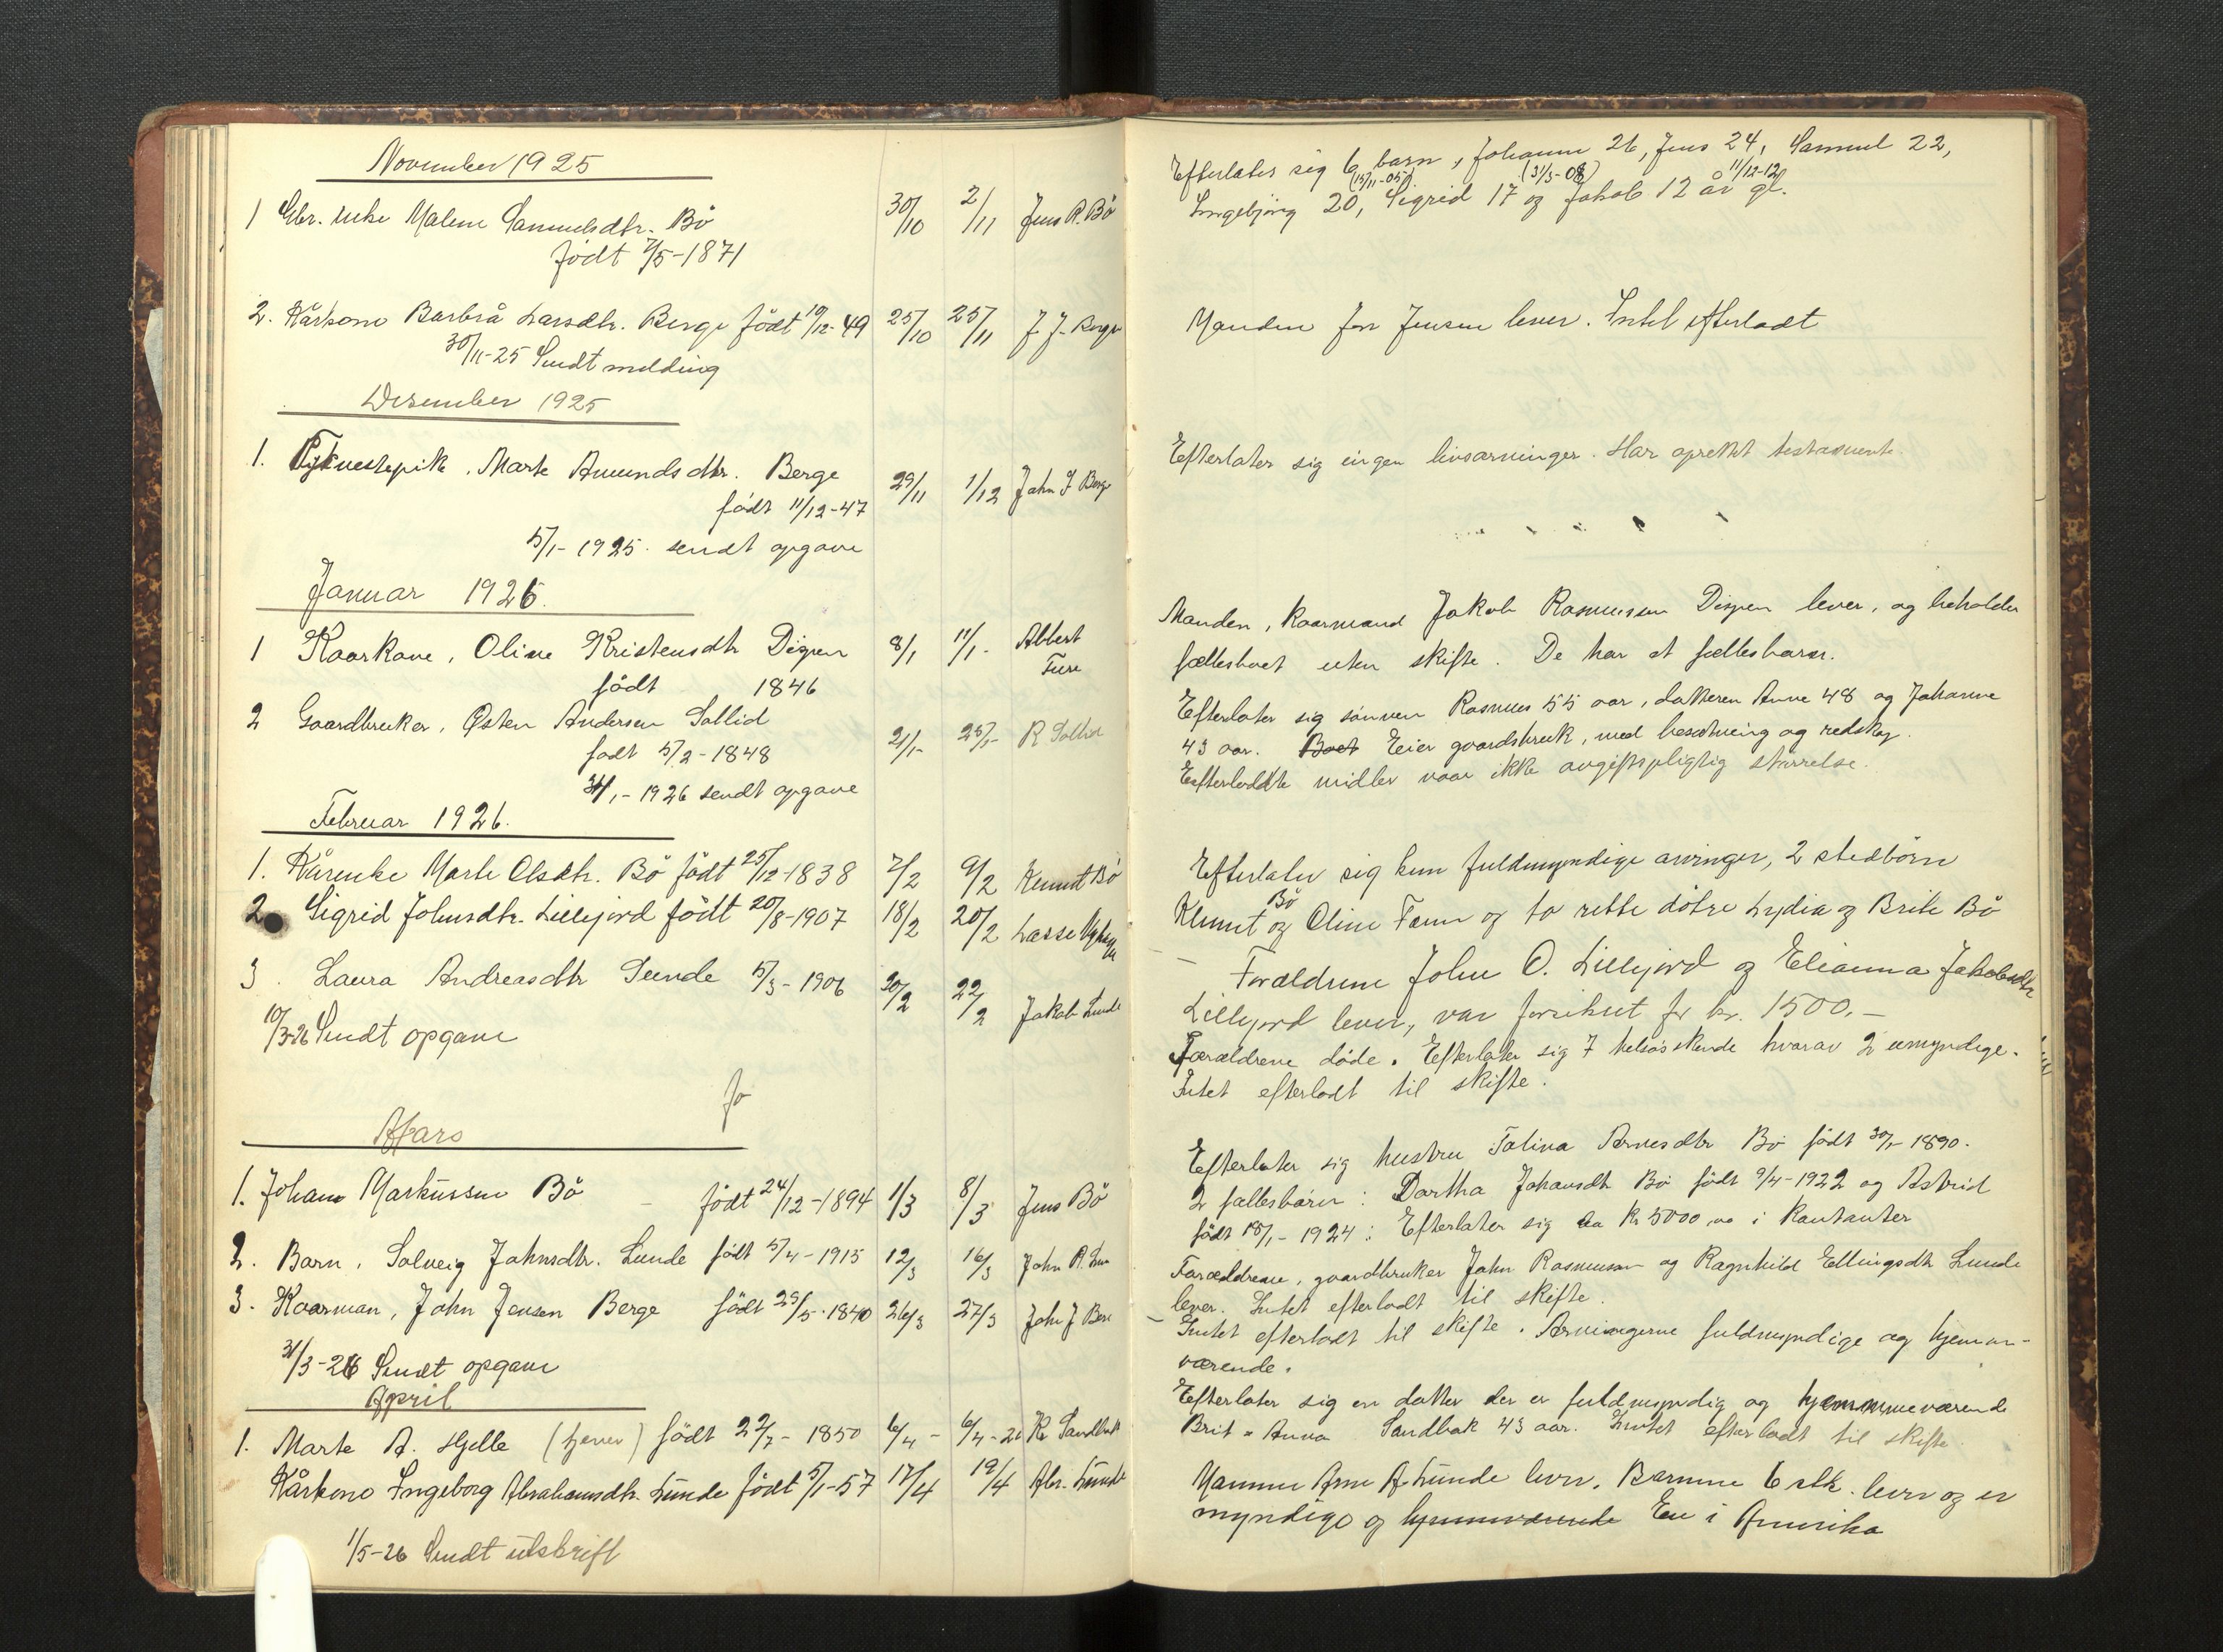 November 1925
1 Gbr. enke Malene Samuelsdtr. Bö 30/10 2/11 Jens R. Bö
födt 7/5-1871
2. Kårkone Barbrå Larsdtr. Berge födt 19/12-49 25/10 25/11 J. J. Berge
30/11-25 Sendt melding
Desember 1925
1. Marte Amundsdtr. Berge 29/11 1/12 John J Berge
födt 11/12-47
5/1-1925. sendt opgave
Januar 1926.
1 Kaarkone, Oline Kristensdtr Dispen 8/1 11/1- Albert
födt 1846
2 Gaardbruker, Østen Andersen Sollid 21/1- 25/1- R Sollid
födt 5/2-1848
31/1-1926 sendt opgave
Februar 1926.
1. Kårenke Marte Olsdtr. Bö födt 25/12-1838 7/2 9/2 Klemet Bö
2. Sigrid Johnsdtr. Lillejord födt 20/8-1907 18/2 20/2 Lasse
3. Laura Andreasdtr Lunde 5/3-1906 20/2 22/2 Jakob Lunde
10/3-26 Sendt opgave
Jo
Mars
1. Johan Markussen Bö – födt 24/12-1894 1/3 8/3 Jens Bö
2. Barn, Solveig Johnsdtr. Lunde födt 5/4-1915 12/3 16/3 John R. Lun
3. Kaarman, John Jensen Berge födt 29/5-1840 26/3 27/3 John J Ber
31/3-26 Sendt opgave
April
1. Marte A. Hjelle födt 22/7-1850 6/4 - 6/4-26 R. Sandbak
Kårkone Ingeborg Abrahamsdtr. Lunde födt 5/1-57 17/4 19/4 Abr. Lunde
1/5-26 Sendt utskrift
Efterlater sig 6 barn, Johanne 26, Jens 24, Samuel 22,
(15/11-05) (31/3-08) 11/12-12
Ingebjörg 20, Sigrid 17 og Jakob 12 år gl.
Manden Jon Jensen lever. Intet efterladt
Efterlater sig ingen livsarvinger. Har oprettet testamente.
Manden, Kaarmand Jakob Rasmussen Dispen lever, og beholder
fællesboet uten skifte. De har et fællesbarn.
Efterlater sig sönnen Rasmus 55 aar, datteren Anne 48 og Johanne
43 aar. Boet Eier gaardsbruk, med besætning og redskap.
Efterladte midler naar ikke avgiftspligtig størrelse.
Efterlater sig kun fuldmyndige arvinger, 2 stedbörn
Bö
Klemet og Oline Fonn og to rette dötre Lydia og Brite Bö
– Forældrene John O. Lillejord og Elianna Jakobsdtr
Lillejord lever, var forsikret for kr. 1500.–
Forældrene döde. Efterlater sig 7 helsöskende hvorav 2 umyndige.
Intet efterladt til skifte.
Efterlater sig hustru Talina Arnesdtr Bö födt 30/1-1890.
2 fællesbörn: Dortha Johansdtr Bö födt 9/4-1922 og Astrid
födt 18/1-1924: Efterlater sig ca kr 5000,00 i kontanter
Forældrene, gaardbruker John Rasmussen og Ragnhild Ellingsdtr Lunde
lever. Intet efterladt til skifte.
– Intet efterladt til skifte. Arvingerne fuldmyndige og hjemme-
værende.
Efterlater sig en datter der er fuldmyndig og hjemmeværende
Brit - Anna Sandbak 43 aar. Intet efterladt til skifte.
Mannen Arne A Lunde lever. Barnene 6 stk. lever og er
myndige og hjemmeværende En i Amerika